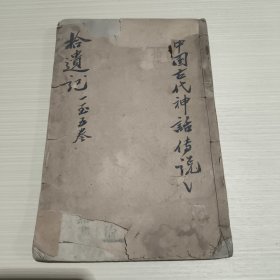 中国古代神话传说
拾遗记 一至五卷